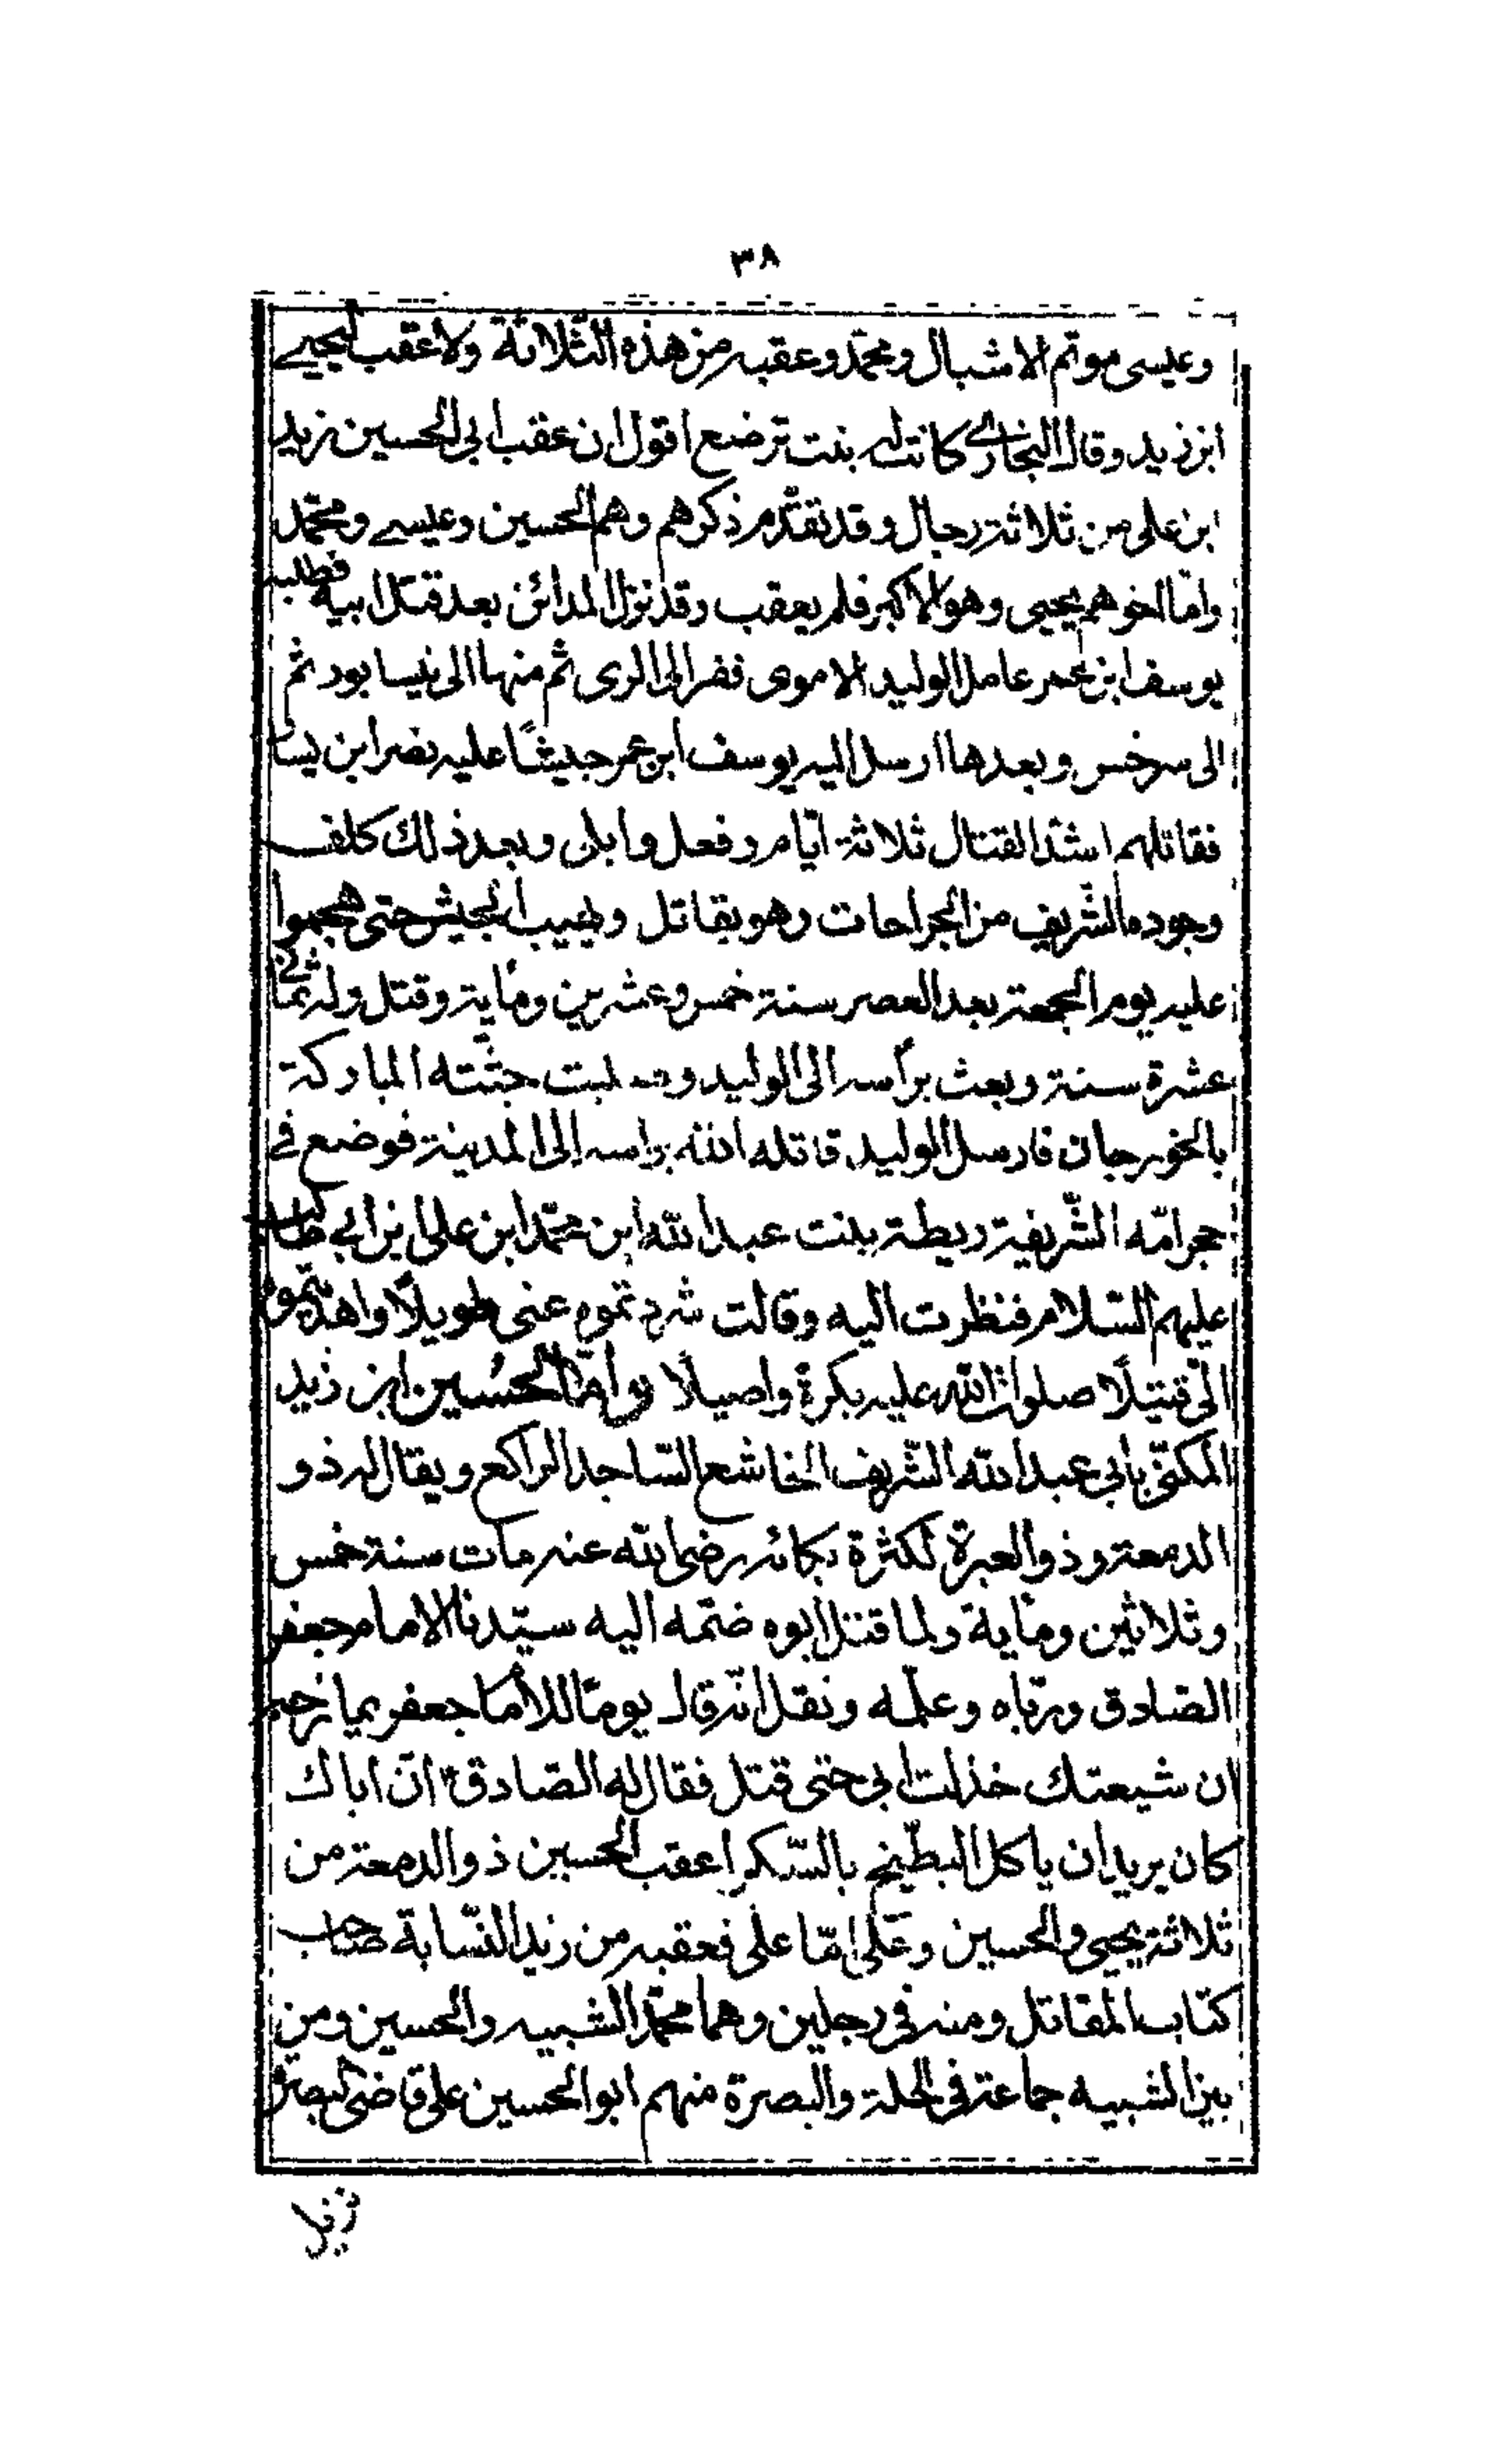 ٣٨
وعيسى موتم الاشبال ومحمّد وعقبه من هذه الثّلاثة ولا عقب ليحيى
ابن زيد وقال البخاري كانت له بنت ترضع اقول ان عقب ابى الحسين زيد
ابن على من ثلاثة رجال وقد تقدّم ذكرهم وهم الحسين وعيسى ومحمّد
وامّا اخوهم يحيى وهو الاكبر فلم يعقب وقد نزل المدائن بعد قتل ابيه فطلبه
يوسف ابن عمر عامل الوليد الاموى ففر الى الرى ثم منها الى نيسابور ثم
الى سرخس وبعدها ارسل اليه يوسف ابن عمر جيشًا عليه نصر ابن يسار
فقاتلهم اشدّ القتال ثلاثة ايّام وفعل وابلى وبعد ذلك كلف
وجوده الشّريف من الجراحات وهو يقاتل ويهيب الجيش حتى هجموا
عليه يوم الجمعة بعد العصر سنة خمس وعشرين ومأية وقتل وله ثمانى
عشرة سنة وبعث برأسه الى الوليد وصلبت جثّته المباركة
بالخورجان فارسل الوليد قاتله الله براسه الى المدينة فوضع فى
حجر امّه الشّريفة ريطة بنت عبد الله ابن محمّد ابن على ابن ابي طالب
عليهم السّلام فنظرت اليه وقالت شردتموه عنى طويلًا واهديتموه
الىّ قتيلًا صلوات الله عليه بكرة واصيلًا وامّا الحسين ابن زيد
المكنّى بابى عبد الله الشّريف الخاشع السّاجد الراكع ويقال له ذو
الدمعة وذو العبرة لكثرة بكائه رضى الله عنه مات سنة خمس
وثلاثين ومأية ولما قتل ابوه ضمّه اليه سيّدنا الامام جعفر
الصّادق وربّاه وعلّمه ونقل انّه قال يومًا للأمام جعفر
ان شيعتك خذلت ابى حتى قتل فقال له الصّادق انّ اباك
كان يريد ان ياكل البطّيخ بالسّكر اعقب الحسين ذو الدمعة من
ثلاثة يحيى والحسين وعلى امّا على فعقبه من زيد النّسّابة صاحب
كتاب المقاتل ومنه فى رجلين وهما محمّد الشبيه والحسين ومن
بين الشبيه جماعة فى الحلة والبصرة منهم ابو الحسين على قاضى البصرة